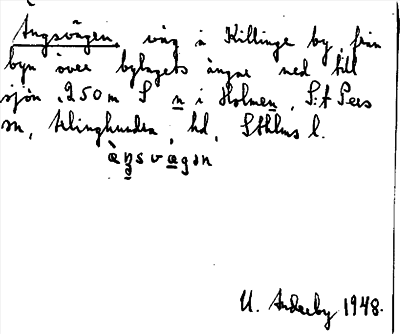 Ängsvägen, väg i Killinge by, från
byn över bylagets ängar ned till
sjön, 250 m S n i Holmen, S:t Pers
sn, Erlinghundra hd, Sthlms l.
U. Anderby 1948.